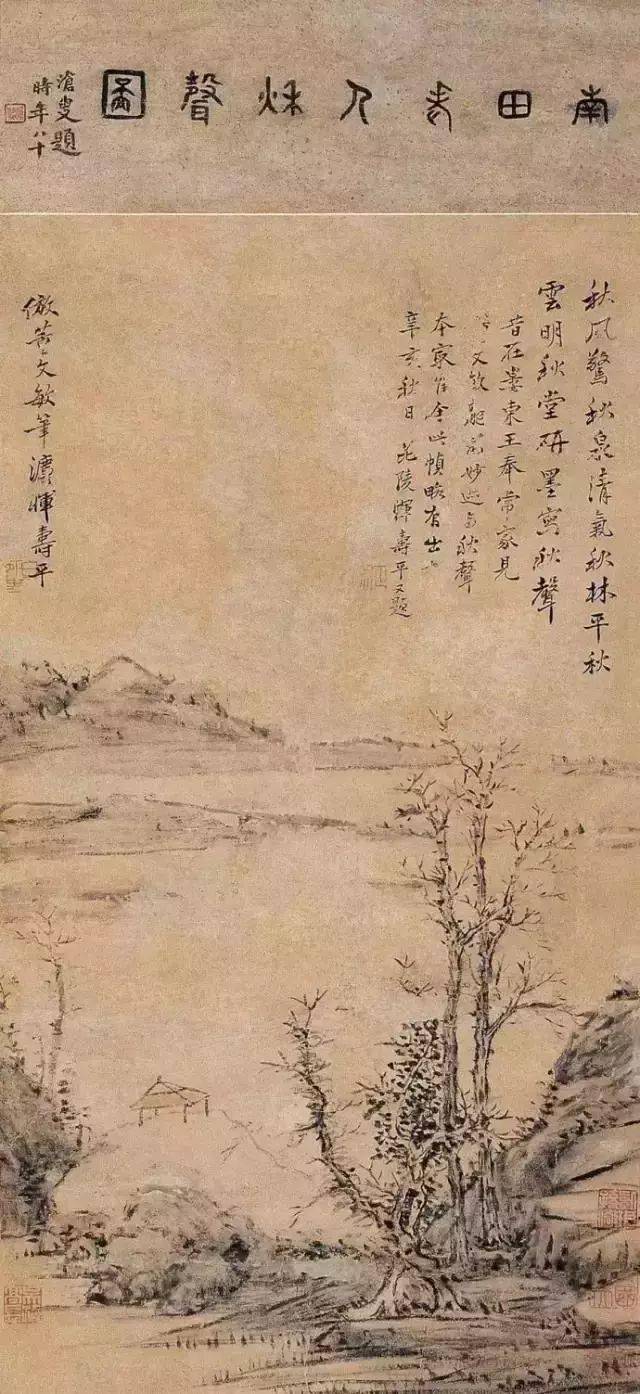 南田老人秋聲圖
滄叟題
時年八十
秋風驚秋泉清氣秋林平秋
雲明秋堂研墨寫秋聲
昔在婁東王奉常家見
文敏妙迹秋聲
本寂今此幀略有出
辛亥秋日毗陵惲壽平又題
倣董文敏筆灋惲壽平